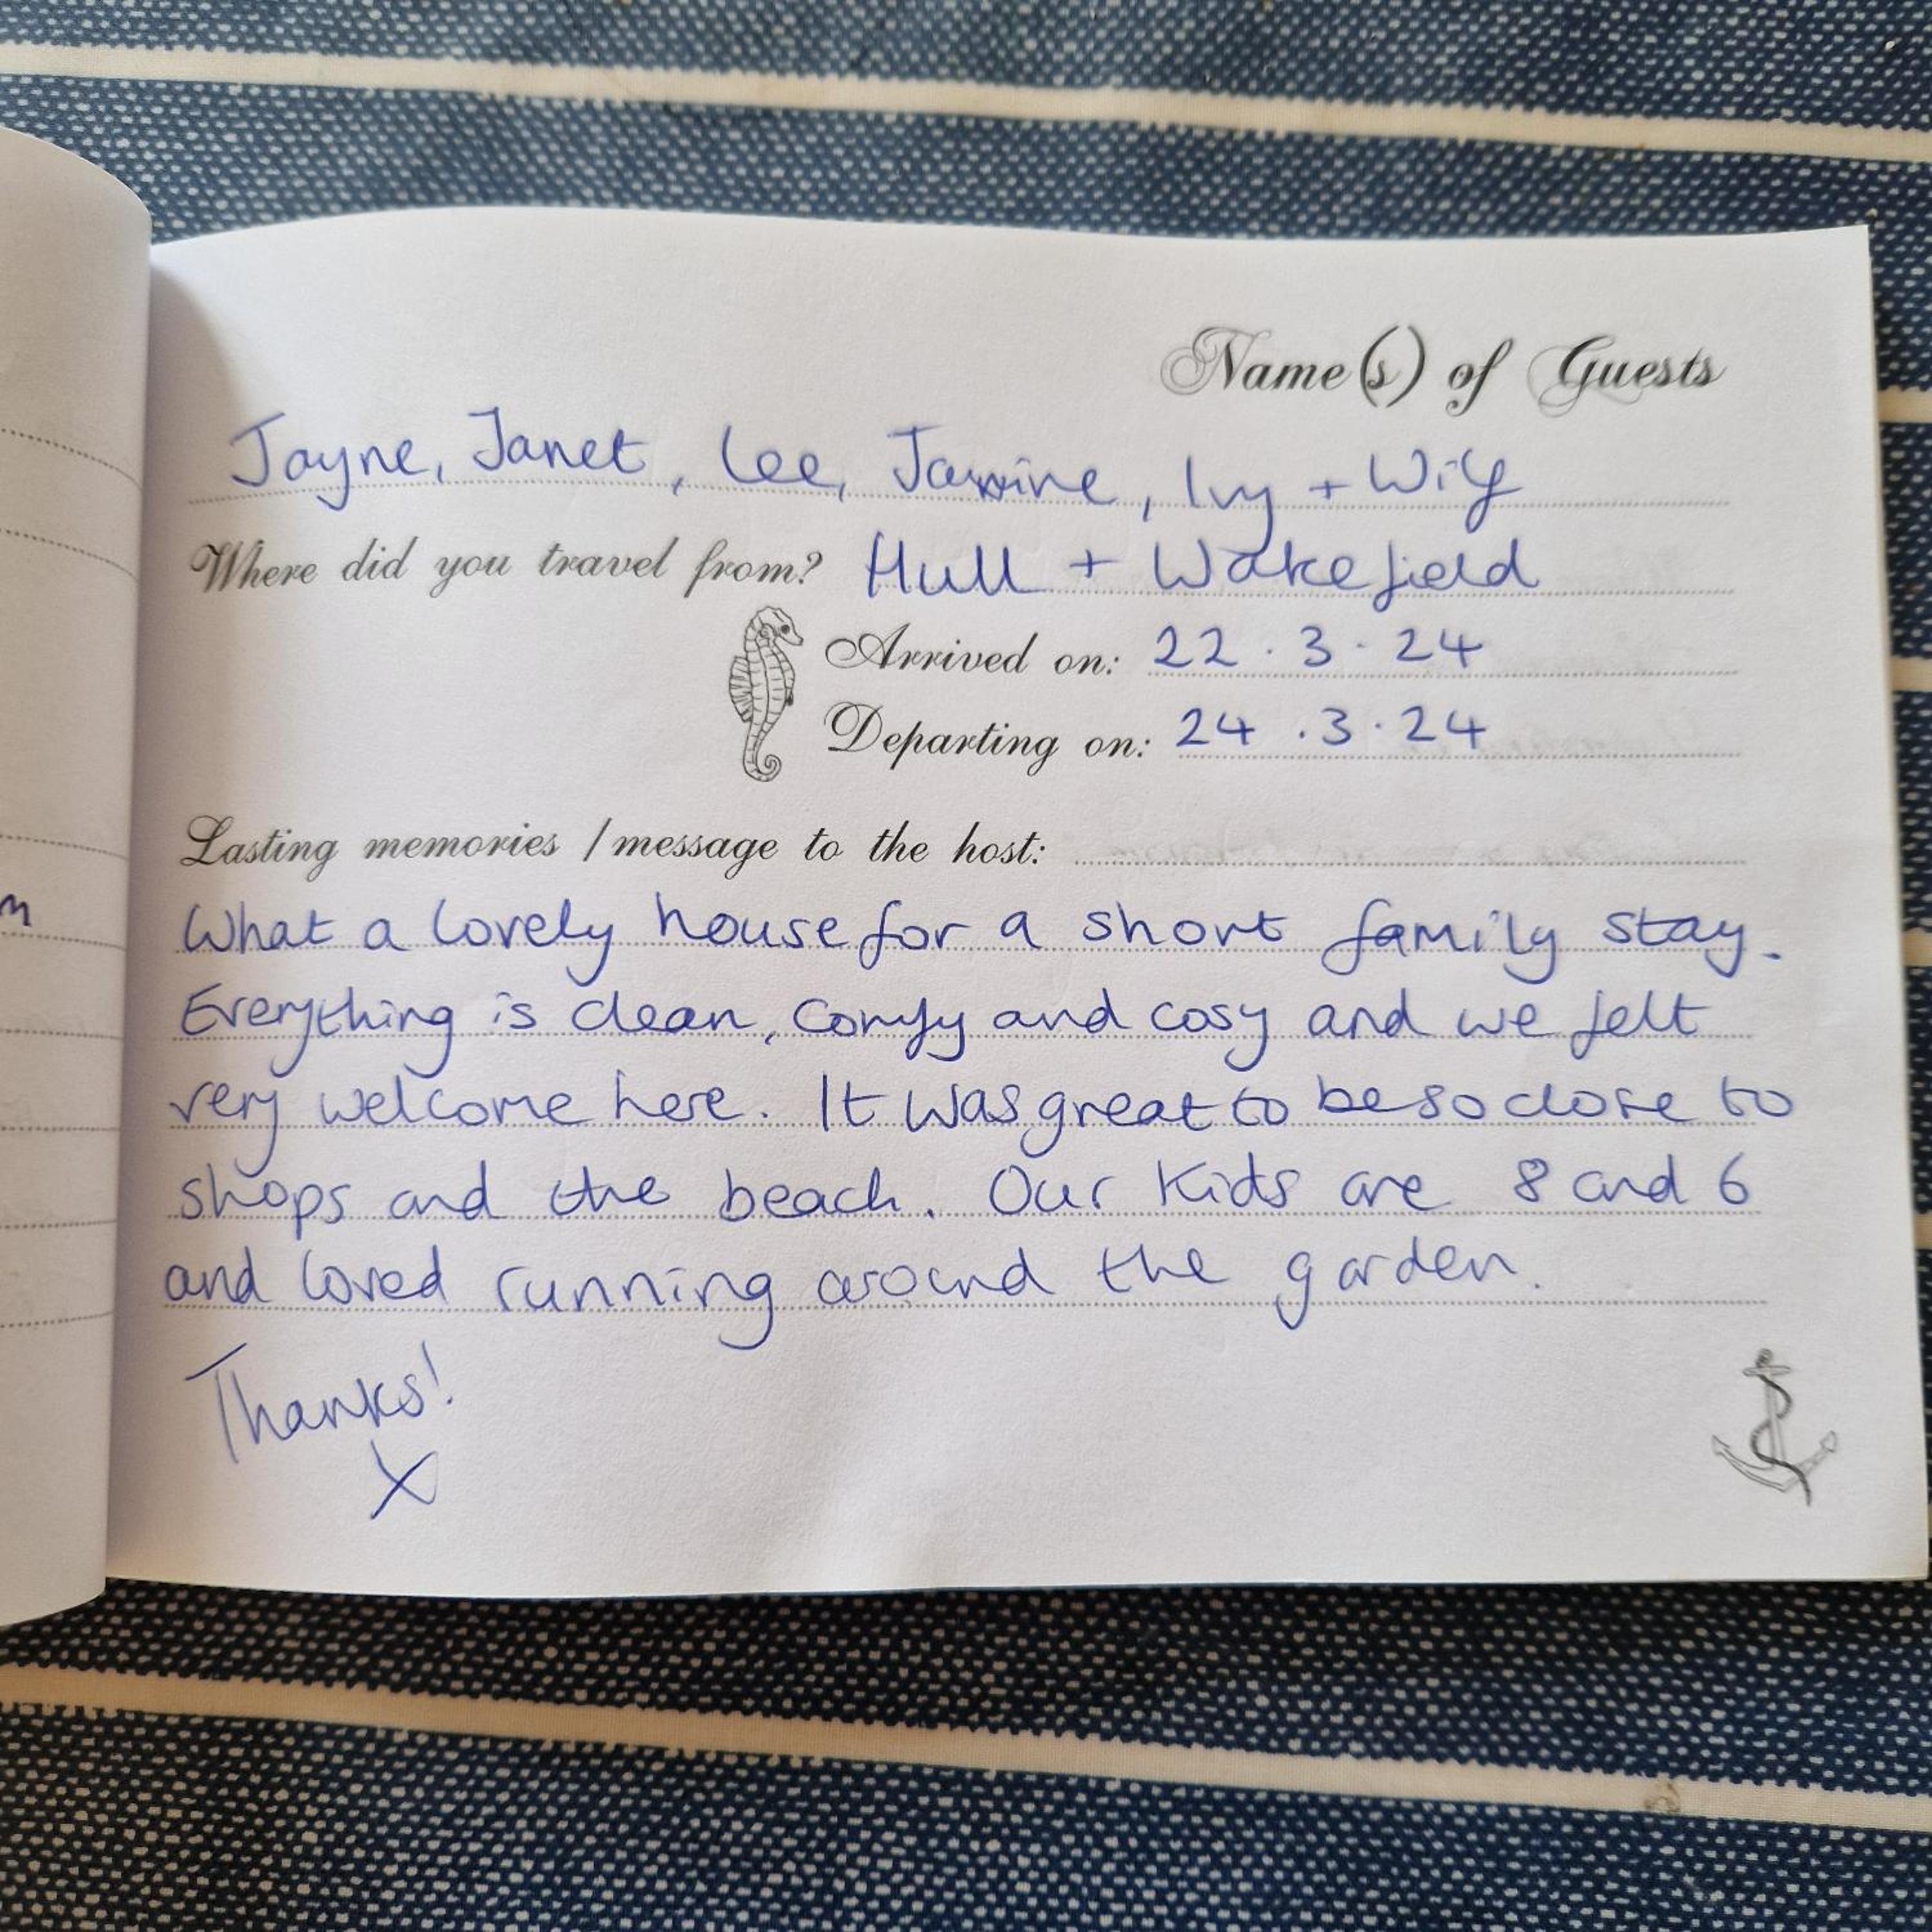 Name(s) of Guests
Jayne, Janet, Lee, Janine, Ivy + Wilf
Where did you travel from? Hull + Wakefield
Arrived on: 22.3.24
Departing on: 24.3.24
Lasting memories / message to the host:
What a lovely house for a short family stay.
Everything is clean, comfy and cosy and we felt
very welcome here. It was great to be so close to
shops and the beach. Our kids are 8 and 6
and loved running around the garden.
Thanks!
X